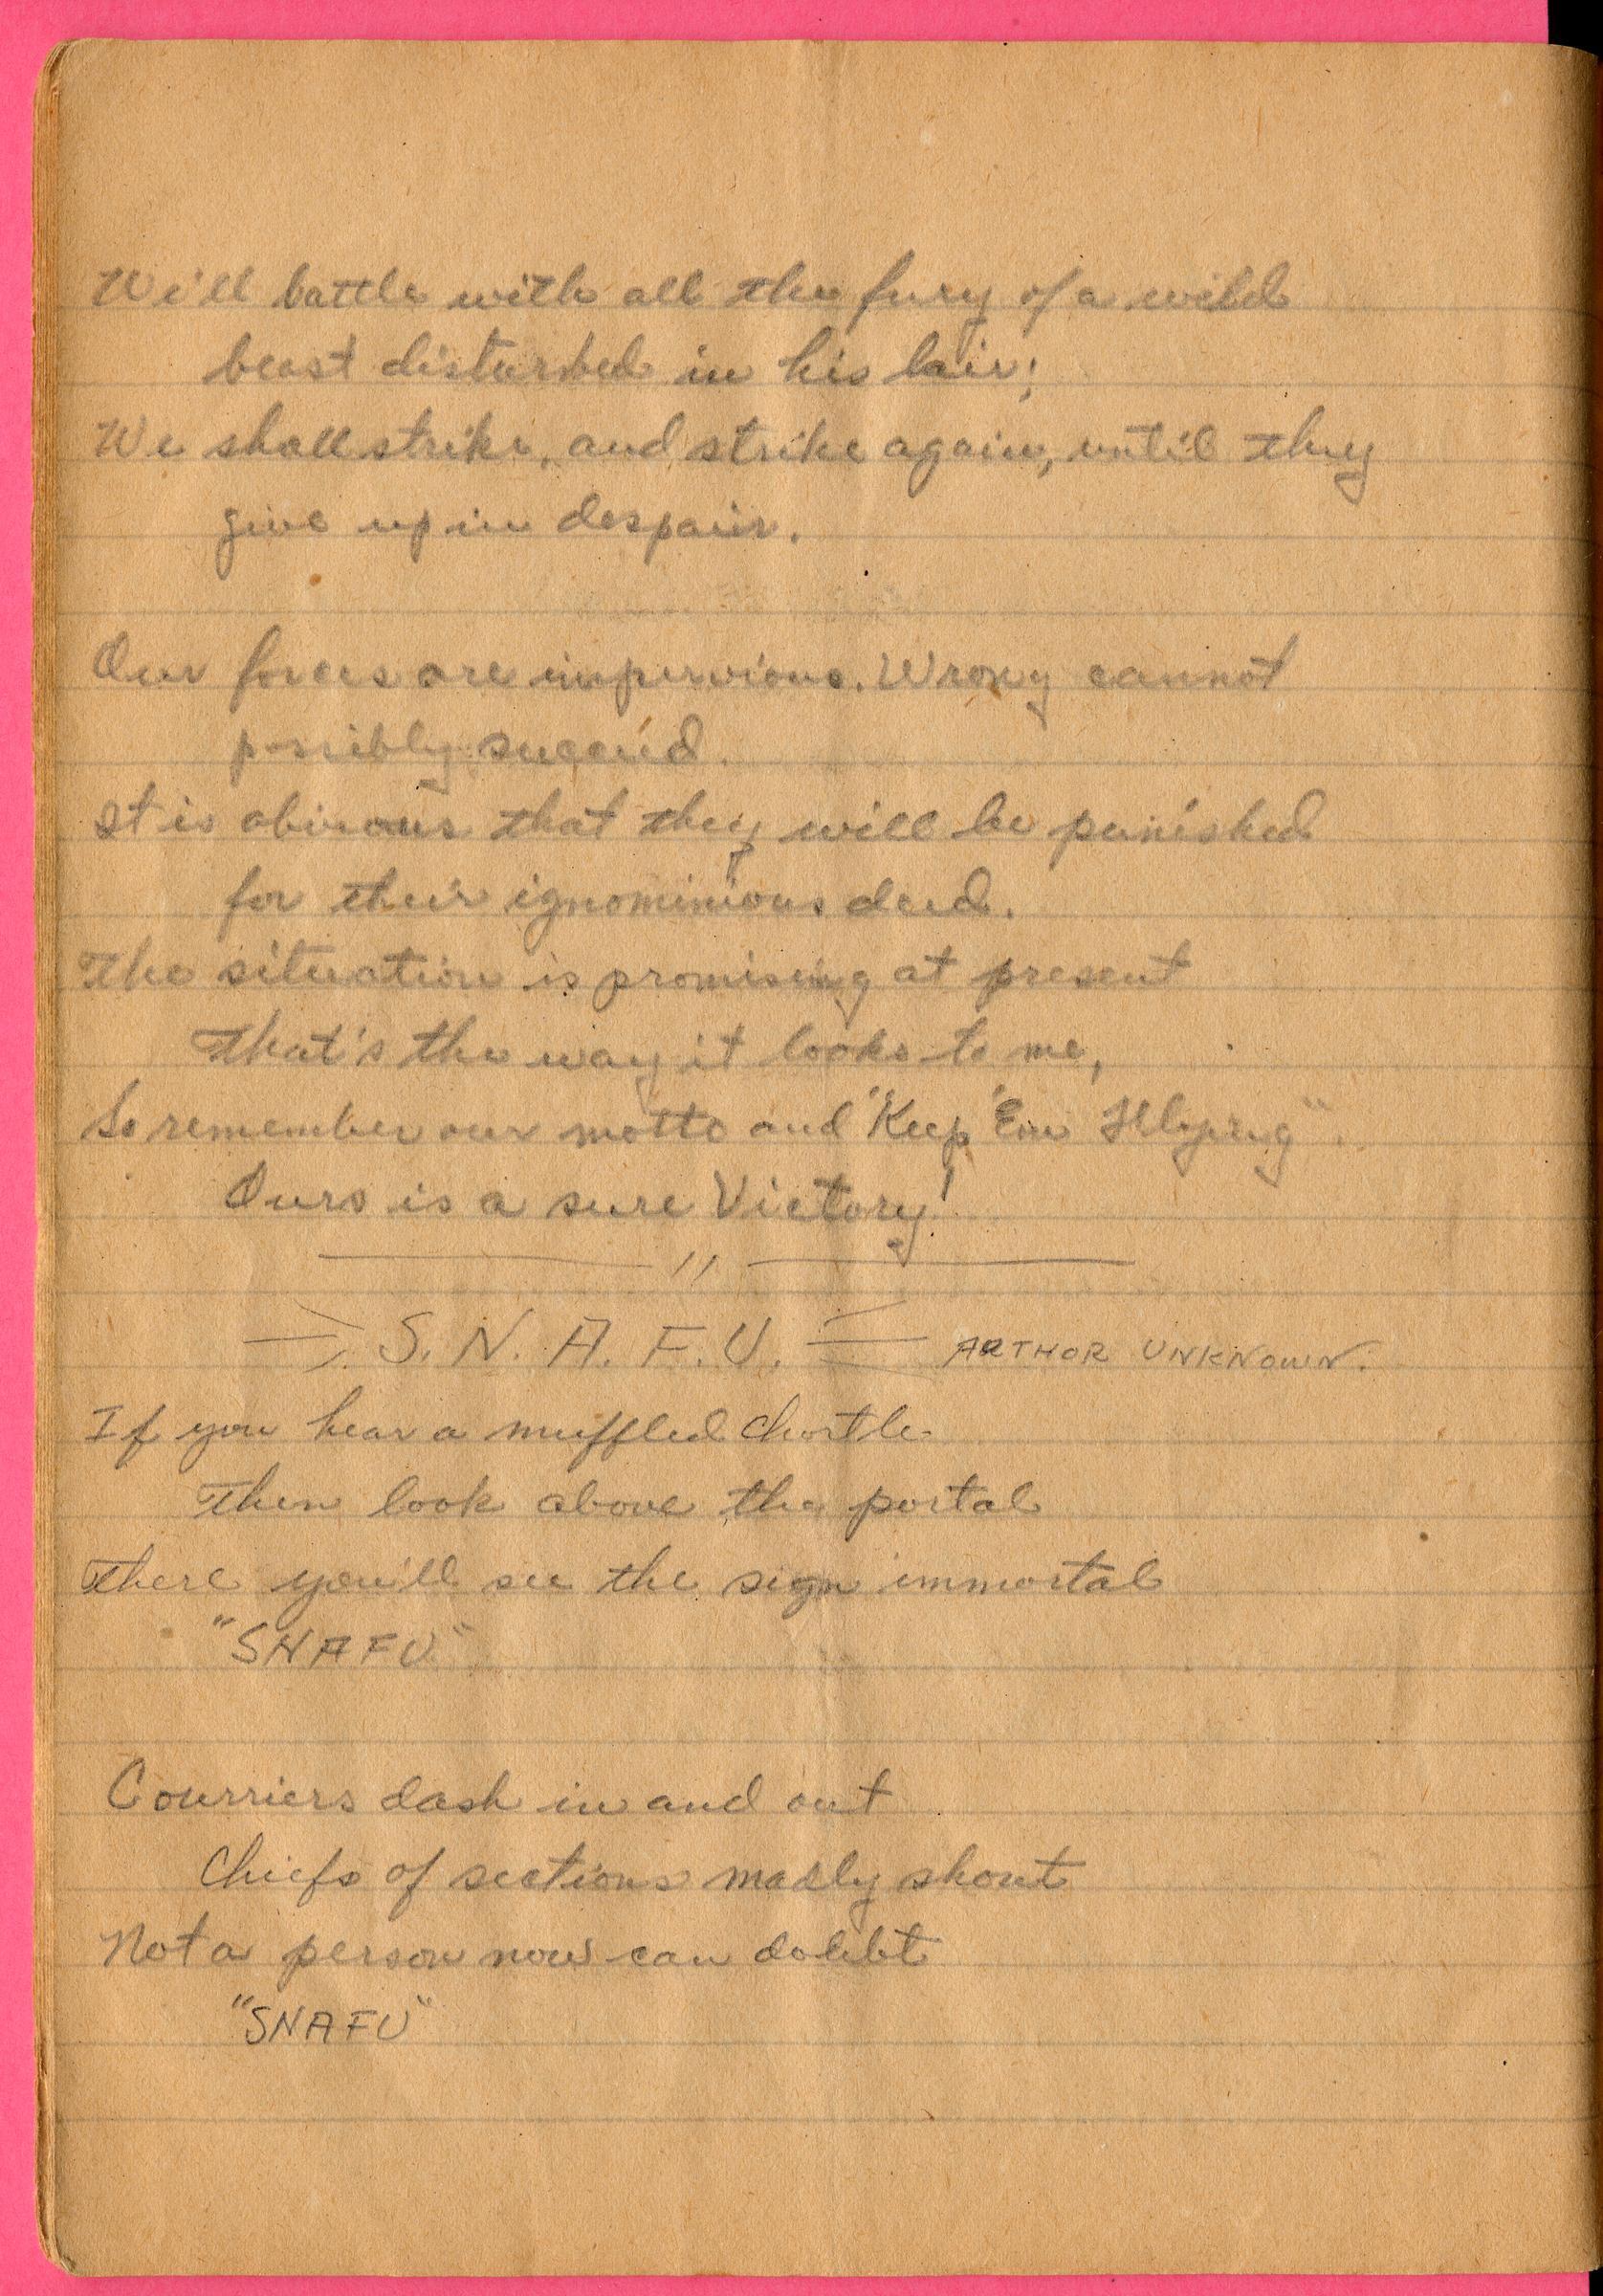 We'll battle with all the fury of a wild
beast disturbed in his lair;
We shall strike, and strike again, until they
give up in despair.
Our forces are impervious. Wrong cannot
possibly succeed.
It is obvious that they will be punished
for their ignominious deed.
The situation is promising at present
That's the way it looks to me,
So remember our motto and "Keep 'Em Flying".
Ours is a sure Victory!
S. N. A. F. U. ARTHOR UNKNOWN.
If you hear a muffled chortle
Then look above the portal
There you'll see the sign immortal
"SNAFU"
Courriers dash in and out
Chiefs of sections madly shout
Not a person now can doubt
"SNAFU"